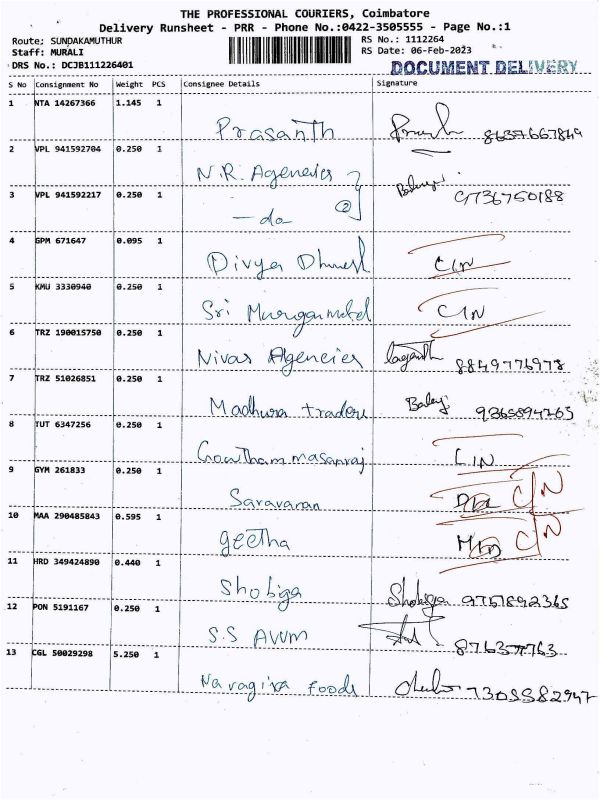 THE PROFESSIONAL COURIERS, Coimbatore
Delivery Runsheet - PRR - Phone No.:0422-3505555 - Page No.:1
Route; SUNDAKAMUTHUR RS No.: 1112264
Staff: MURALI RS Date: 06-Feb-2023
DRS No.: DCJB111226401 DOCUMENT DELIVERY
S No Consignment No Weight PCS Consignee Details Signature
1 NTA 14267366 1.145 1
Prasanth 8637667849
2 VPL 941592704 0.250 1
N.R. Agencies
3 VPL 941592217 0.250 1
- do - 2 9736750188
4 GPM 671647 0.095 1
Divya C/N
5 KMU 3330940 0.250 1
Sri C/N
6 TRZ 190015750 0.250 1
Nivas Agencies 8849776978
7 TRZ 51026851 0.250 1
Madhura traders
8 TUT 6347256 0.250 1
C/N
9 GYM 261833 0.250 1
Saravanan C/N
10 MAA 290485843 0.595 1
geetha C/N
11 HRD 349424890 0.440 1
Shobiga Shobiga 9751892365
12 PON 5191167 0.250 1
S.S
13 CGL 50029298 5.250 1
Foods